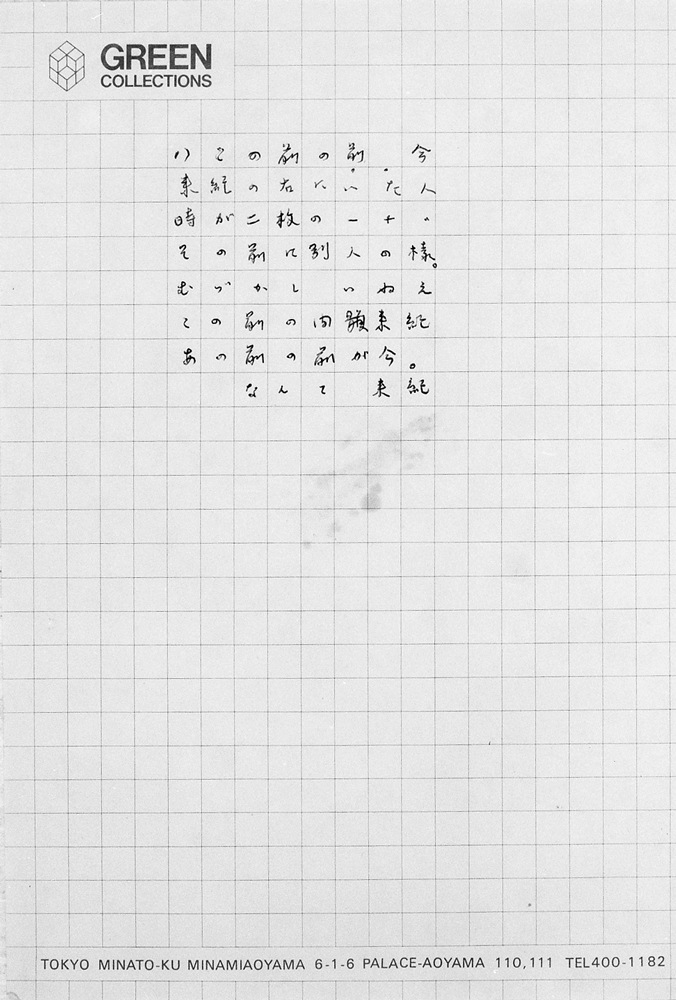 GREEN
COLLECTIONS
この前の前 今
来紀の右にいた人
時が二枚の一
その前に別人の様。
むづかしいねえ
この前の 来紀
あの前の前が今。
なんて 来紀
TOKYO MINATO-KU MINAMIAOYAMA 6-1-6 PALACE-AOYAMA 110,111 TEL400-1182